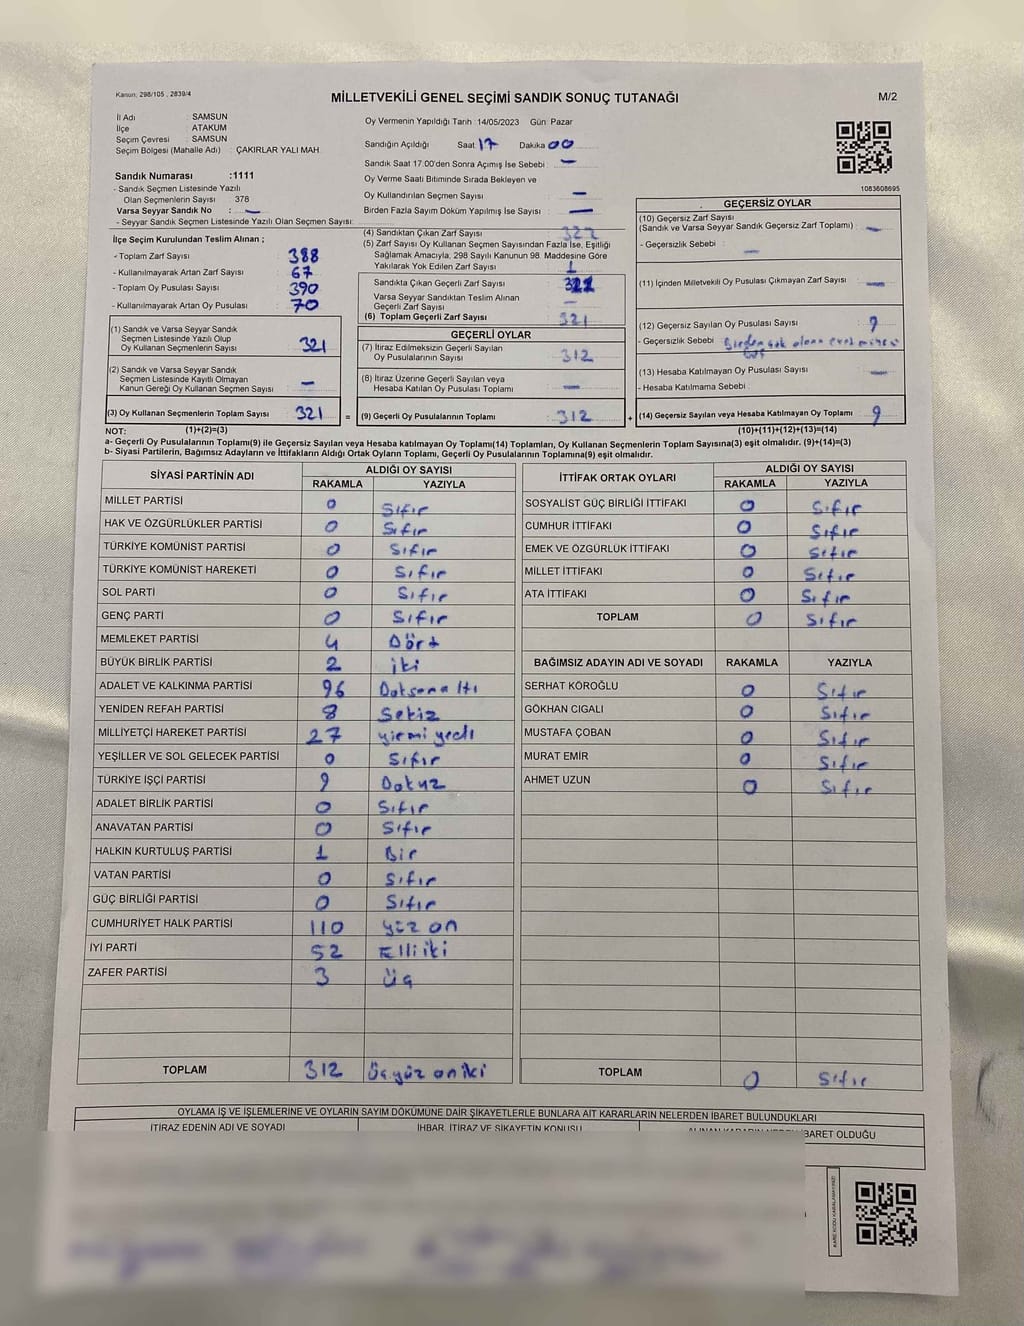 Kanun; 298/105 , 2839/4
MİLLETVEKİLİ GENEL SEÇİMİ SANDIK SONUÇ TUTANAĞI
M/2
İl Adı : SAMSUN
İlçe : ATAKUM
Seçim Çevresi : SAMSUN
Seçim Bölgesi (Mahalle Adı) : ÇAKIRLAR YALI MAH.
Sandık Numarası :1111
- Sandık Seçmen Listesinde Yazılı
Olan Seçmenlerin Sayısı 378
Varsa Seyyar Sandık No : -
- Seyyar Sandık Seçmen Listesinde Yazılı Olan Seçmen Sayısı:
İlçe Seçim Kurulundan Teslim Alınan ;
- Toplam Zarf Sayısı 388
- Kullanılmayarak Artan Zarf Sayısı 67
- Toplam Oy Pusulası Sayısı 390
- Kullanılmayarak Artan Oy Pusulası 70
(1) Sandık ve Varsa Seyyar Sandık
Seçmen Listesinde Yazılı Olup
Oy Kullanan Seçmenlerin Sayısı 321
(2) Sandık ve Varsa Seyyar Sandık
Seçmen Listesinde Kayıtlı Olmayan
Kanun Gereği Oy Kullanan Seçmen Sayısı -
(3) Oy Kullanan Seçmenlerin Toplam Sayısı 321 =
Oy Vermenin Yapıldığı Tarih :14/05/2023 Gün :Pazar
Sandığın Açıldığı Saat 17 Dakika 00
Sandık Saat 17:00'den Sonra Açılmış İse Sebebi : -
Oy Verme Saati Bitiminde Sırada Bekleyen ve
Oy Kullandırılan Seçmen Sayısı -
Birden Fazla Sayım Döküm Yapılmış İse Sayısı : -
(4) Sandıktan Çıkan Zarf Sayısı 322
(5) Zarf Sayısı Oy Kullanan Seçmen Sayısından Fazla İse, Eşitliği
Sağlamak Amacıyla, 298 Sayılı Kanunun 98. Maddesine Göre
Yakılarak Yok Edilen Zarf Sayısı 1
Sandıkta Çıkan Geçerli Zarf Sayısı
Varsa Seyyar Sandıktan Teslim Alınan
Geçerli Zarf Sayısı -
(6) Toplam Geçerli Zarf Sayısı 321
GEÇERLİ OYLAR
(7) İtiraz Edilmeksizin Geçerli Sayılan
Oy Pusulalarının Sayısı 312
(8) İtiraz Üzerine Geçerli Sayılan veya
Hesaba Katılan Oy Pusulası Toplamı -
(9) Geçerli Oy Pusulalarının Toplamı 312 +
1083608695
GEÇERSİZ OYLAR
(10) Geçersiz Zarf Sayısı
(Sandık ve Varsa Seyyar Sandık Geçersiz Zarf Toplamı) : -
- Geçersizlik Sebebi : -
(11) İçinden Milletvekili Oy Pusulası Çıkmayan Zarf Sayısı -
(12) Geçersiz Sayılan Oy Pusulası Sayısı 9
- Geçersizlik Sebebi Birden çok olan
(13) Hesaba Katılmayan Oy Pusulası Sayısı -
- Hesaba Katılmama Sebebi :
(14) Geçersiz Sayılan veya Hesaba Katılmayan Oy Toplamı 9
NOT: (1)+(2)=(3) (10)+(11)+(12)+(13)=(14)
a- Geçerli Oy Pusulalarının Toplamı(9) ile Geçersiz Sayılan veya Hesaba katılmayan Oy Toplamı(14) Toplamları, Oy Kullanan Seçmenlerin Toplam Sayısına(3) eşit olmalıdır. (9)+(14)=(3)
b- Siyasi Partilerin, Bağımsız Adayların ve İttifakların Aldığı Ortak Oyların Toplamı, Geçerli Oy Pusulalarının Toplamına(9) eşit olmalıdır.
SİYASİ PARTİNİN ADI ALDIĞI OY SAYISI
RAKAMLA YAZIYLA
MİLLET PARTİSİ 0 Sıfır
HAK VE ÖZGÜRLÜKLER PARTİSİ 0 Sıfır
TÜRKİYE KOMÜNİST PARTİSİ 0 Sıfır
TÜRKİYE KOMÜNİST HAREKETİ 0 Sıfır
SOL PARTİ 0 Sıfır
GENÇ PARTİ 0 Sıfır
MEMLEKET PARTİSİ 4 Dört
BÜYÜK BİRLİK PARTİSİ 2 iki
ADALET VE KALKINMA PARTİSİ 96 Doksanaltı
YENİDEN REFAH PARTİSİ 8 Sekiz
MİLLİYETÇİ HAREKET PARTİSİ 27 yirmi yedi
YEŞİLLER VE SOL GELECEK PARTİSİ 0 Sıfır
TÜRKİYE İŞÇİ PARTİSİ 9 Dokuz
ADALET BİRLİK PARTİSİ 0 Sıfır
ANAVATAN PARTİSİ 0 Sıfır
HALKIN KURTULUŞ PARTİSİ 1 Bir
VATAN PARTİSİ 0 Sıfır
GÜÇ BİRLİĞİ PARTİSİ 0 Sıfır
CUMHURİYET HALK PARTİSİ 110 yüz on
İYİ PARTİ 52 Elli iki
ZAFER PARTİSİ 3 üç
TOPLAM 312 üçyüz oniki
İTTİFAK ORTAK OYLARI ALDIĞI OY SAYISI
RAKAMLA YAZIYLA
SOSYALİST GÜÇ BİRLİĞİ İTTİFAKI 0 Sıfır
CUMHUR İTTİFAKI 0 Sıfır
EMEK VE ÖZGÜRLÜK İTTİFAKI 0 Sıfır
MİLLET İTTİFAKI 0 Sıfır
ATA İTTİFAKI 0 Sıfır
TOPLAM 0 Sıfır
BAĞIMSIZ ADAYIN ADI VE SOYADI RAKAMLA YAZIYLA
SERHAT KÖROĞLU 0 Sıfır
GÖKHAN CIGALI 0 Sıfır
MUSTAFA ÇOBAN 0 Sıfır
MURAT EMİR 0 Sıfır
AHMET UZUN 0 Sıfır
TOPLAM 0 Sıfır
OYLAMA İŞ VE İŞLEMLERİNE VE OYLARIN SAYIM DÖKÜMÜNE DAİR ŞİKAYETLERLE BUNLARA AİT KARARLARIN NELERDEN İBARET BULUNDUKLARI
İTİRAZ EDENİN ADI VE SOYADI İHBAR, İTİRAZ VE ŞİKAYETİN KONUSU ALINAN KARARIN NEDEN İBARET OLDUĞU
KARE KODU KARALAMAYINIZ!